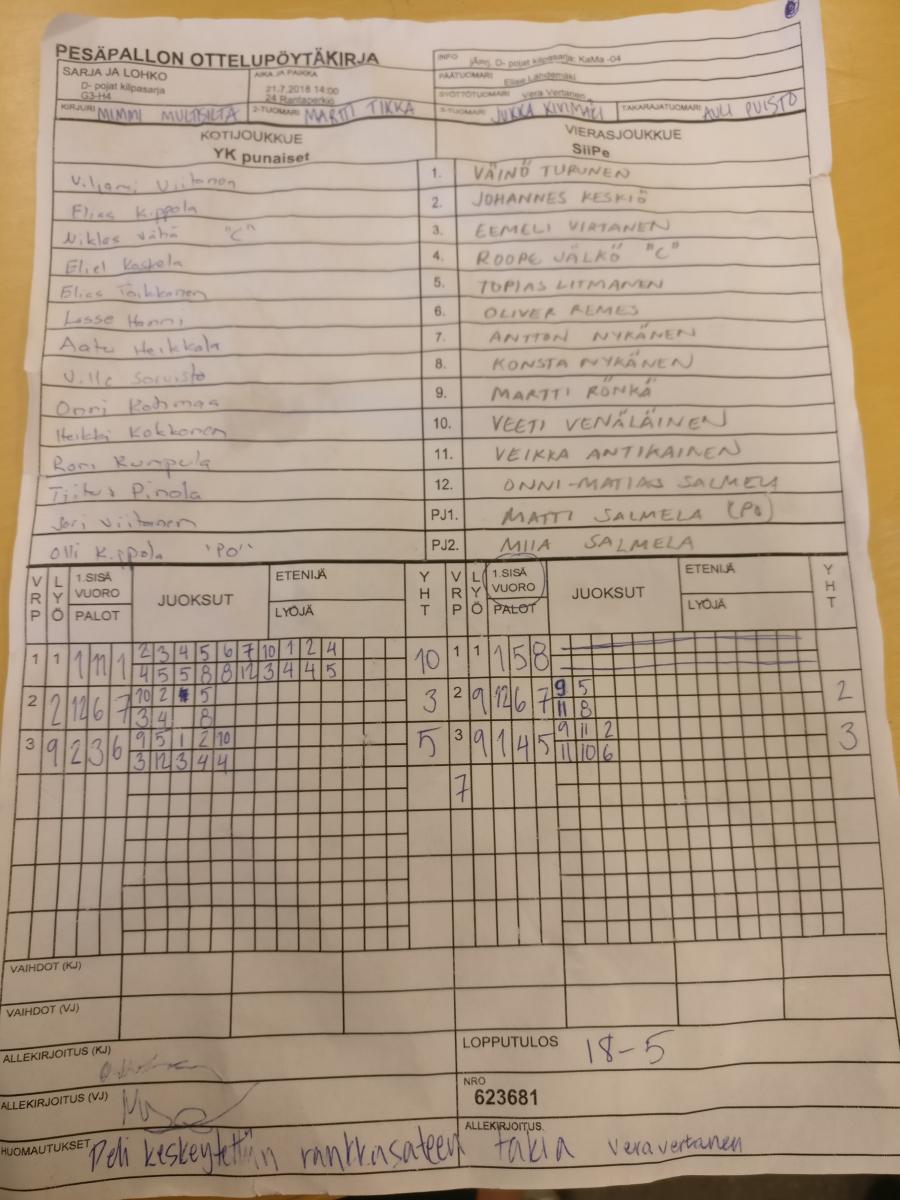 PESÄPALLON OTTELUPÖYTÄKIRJA
SARJA JA LOHKO
D- pojat kilpasarja
G3-H4
AIKA JA PAIKKA
21.7.2018 14:00
24 Rantaperkiö
INFO jÄrnj. D- pojat kilpasarja: KaMa -04
PÄÄTUOMARI Elise Lähdemäki
SYÖTTÖTUOMARI Vera Vertanen
KIRJURI MIMMI MULTISILTA 2-TUOMARI MARTTI TIKKA 3-TUOMARI JUKKA KIVIMÄKI TAKARAJATUOMARI AULI PUISTO
KOTIJOUKKUE VIERASJOUKKUE
YK punaiset SiiPe
Viljami Viitanen 1. VÄINÖ TURUNEN
Elias Kippola 2. JOHANNES KESKIÖ
Niklas Vähä "C" 3. EEMELI VIRTANEN
Eliel Koskela 4. ROOPE JÄLKÖ "C"
Elias Toikkonen 5. TOPIAS LITMANEN
Lasse Hanni 6. OLIVER REMES
Aatu Heikkala 7. ANTTON NYKÄNEN
Ville Sorvisto 8. KONSTA NYKÄNEN
Onni Kotimaa 9. MARTTI RÖNKÄ
Heikki Kokkonen 10. VEETI VENÄLÄINEN
Roni Rumpula 11. VEIKKA ANTIKAINEN
Tiitus Pinola 12. ONNI-MATIAS SALMELA
Jari Viitanen PJ1. MATTI SALMELA (PO)
Olli Kippola "PO" PJ2. MIIA SALMELA
VRP LYÖ 1.SISÄ VUORO PALOT JUOKSUT ETENIJÄ LYÖJÄ YHT VRP LYÖ 1.SISÄ VUORO PALOT JUOKSUT ETENIJÄ LYÖJÄ YHT
1 1 1 11 1 2 3 4 5 6 7 10 1 2 4 10 1 1 1 5 8
4 5 5 8 8 12 3 4 4 5
2 2 12 6 7 10 2 5 3 2 9 12 6 7 9 5 2
3 4 8 11 8
3 9 2 3 6 9 5 1 2 10 5 3 9 1 4 5 9 11 2 3
3 12 3 4 4 11 10 6
7
VAIHDOT (KJ)
VAIHDOT (VJ)
ALLEKIRJOITUS (KJ) LOPPUTULOS 18-5
ALLEKIRJOITUS (VJ) NRO
623681
HUOMAUTUKSET Peli keskeytettiin rankkasateen takia ALLEKIRJOITUS. vera vertanen